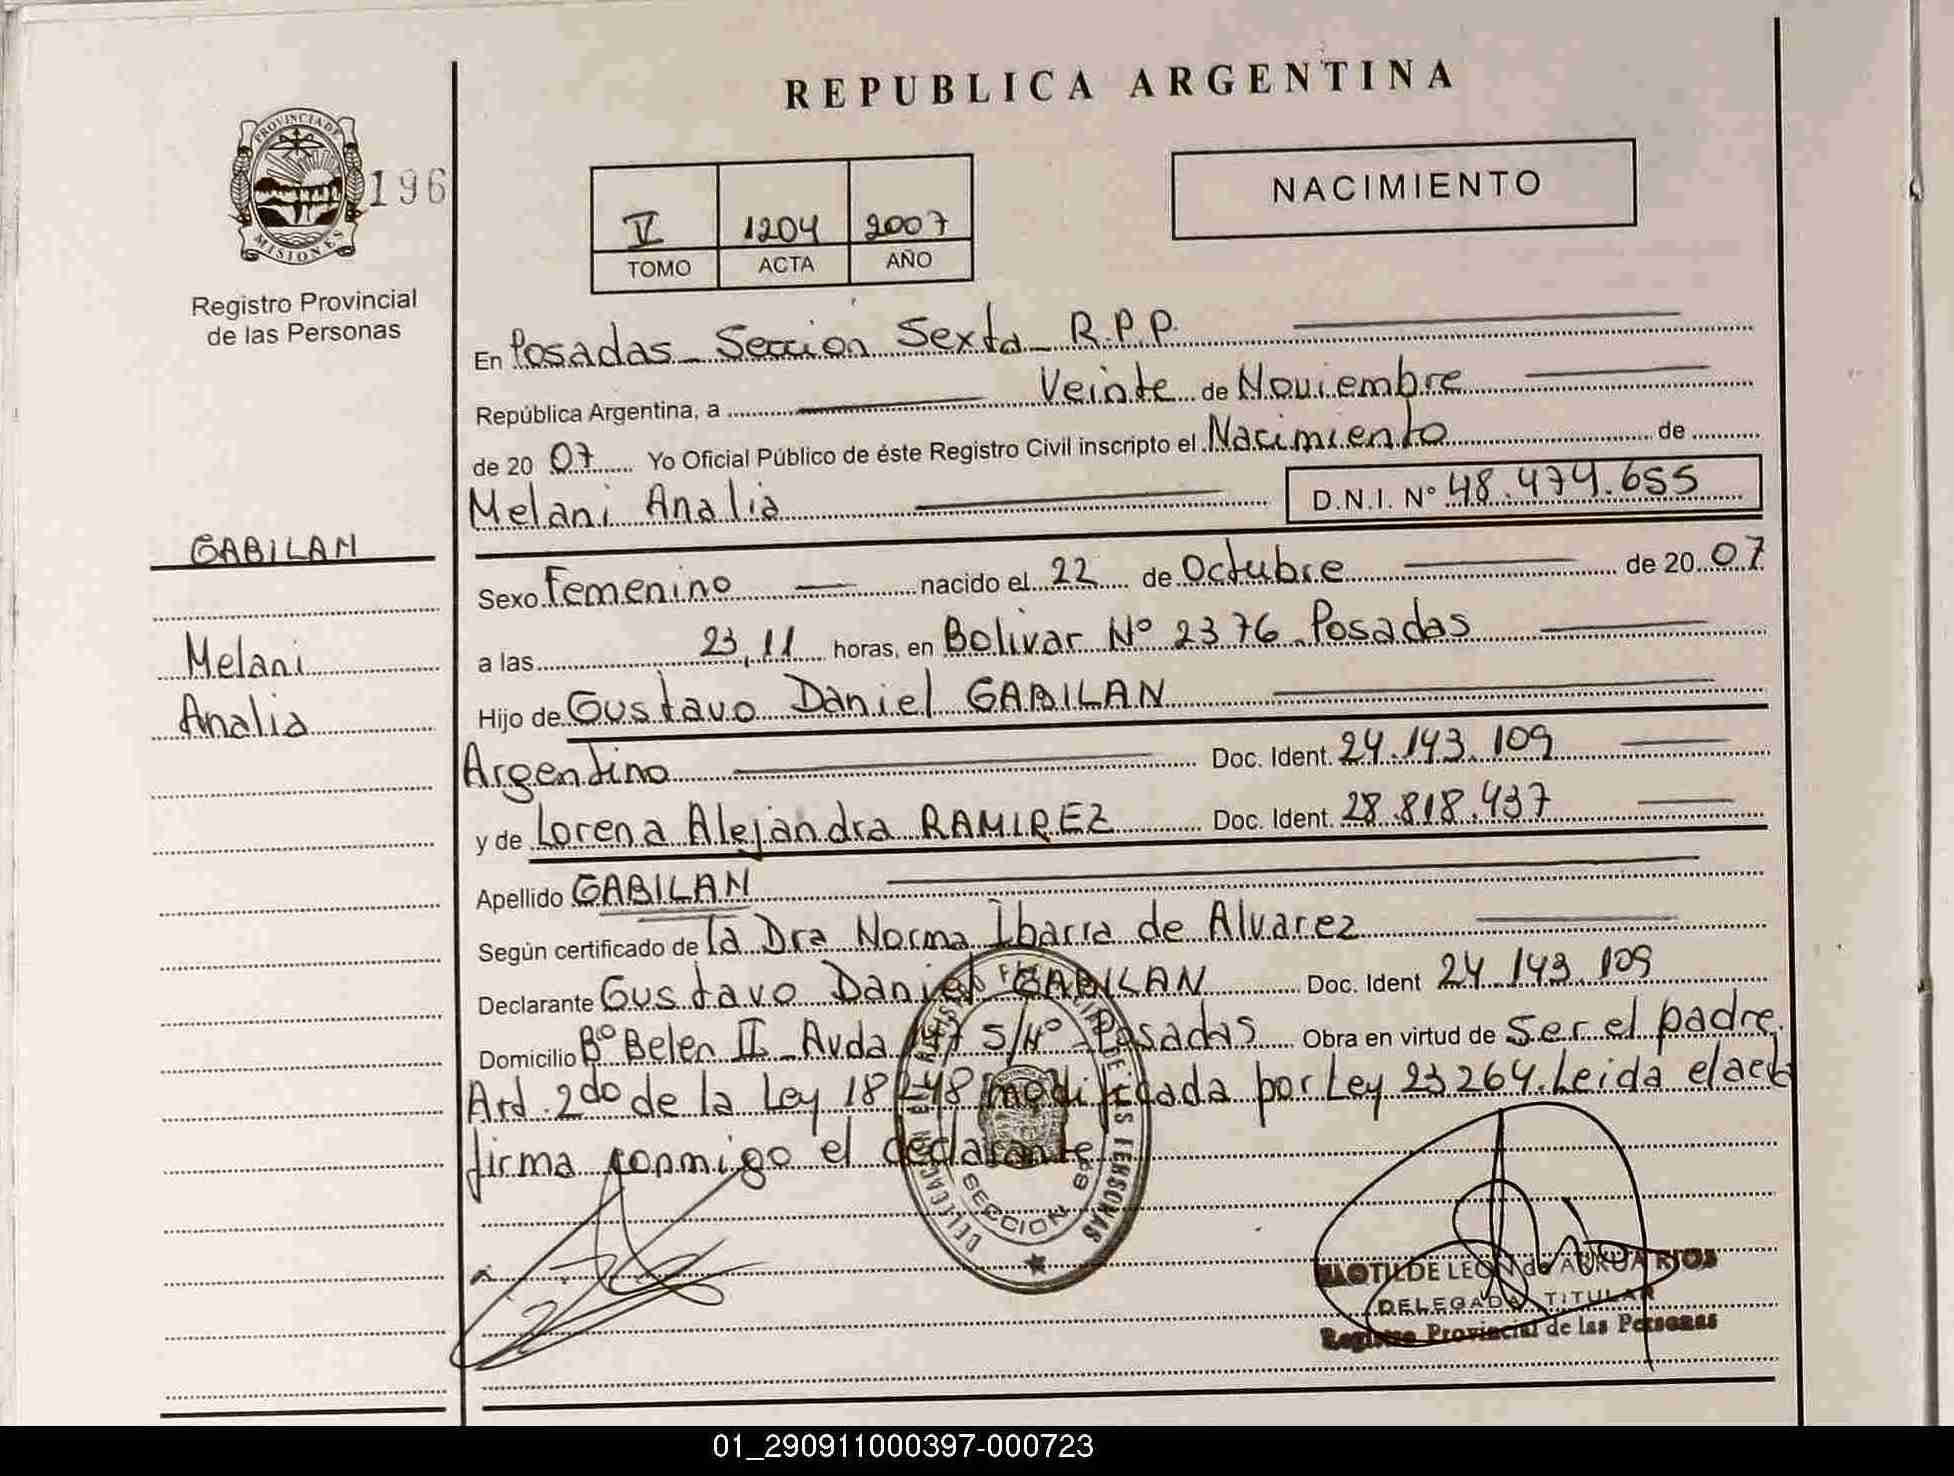 REPUBLICA ARGENTINA
PROVINCIA DE
MISIONES
196
Registro Provincial
de las Personas
V 1204 2007
TOMO ACTA AÑO
NACIMIENTO
En Posadas - Sección Sexta - R.P.P.
República Argentina, a Veinte de Noviembre
de 20 07 Yo Oficial Público de éste Registro Civil inscripto el Nacimiento de
Melani Analia D.N.I. Nº 48.474.655
GABILAN
Melani
Analia
Sexo Femenino nacido el 22 de Octubre de 20 07
a las 23,11 horas, en Bolivar Nº 2376 Posadas
Hijo de Gustavo Daniel GABILAN
Argentino Doc. Ident. 24.143.109
y de Lorena Alejandra RAMIREZ Doc. Ident. 28.818.437
Apellido GABILAN
Según certificado de la Dra Norma Ibarra de Alvarez
Declarante Gustavo Daniel GABILAN Doc. Ident 24.143.109
Domicilio Bº Belen II - Avda 147 S/Nº - Posadas Obra en virtud de Ser el padre.
Art. 2do de la Ley 18248 modificada por Ley 23264. Leida el acta
firma conmigo el declarante
SECCION
DE LAS PERSONAS
DELEGADA TITULAR
Registro Provincial de las Personas
01_290911000397-000723